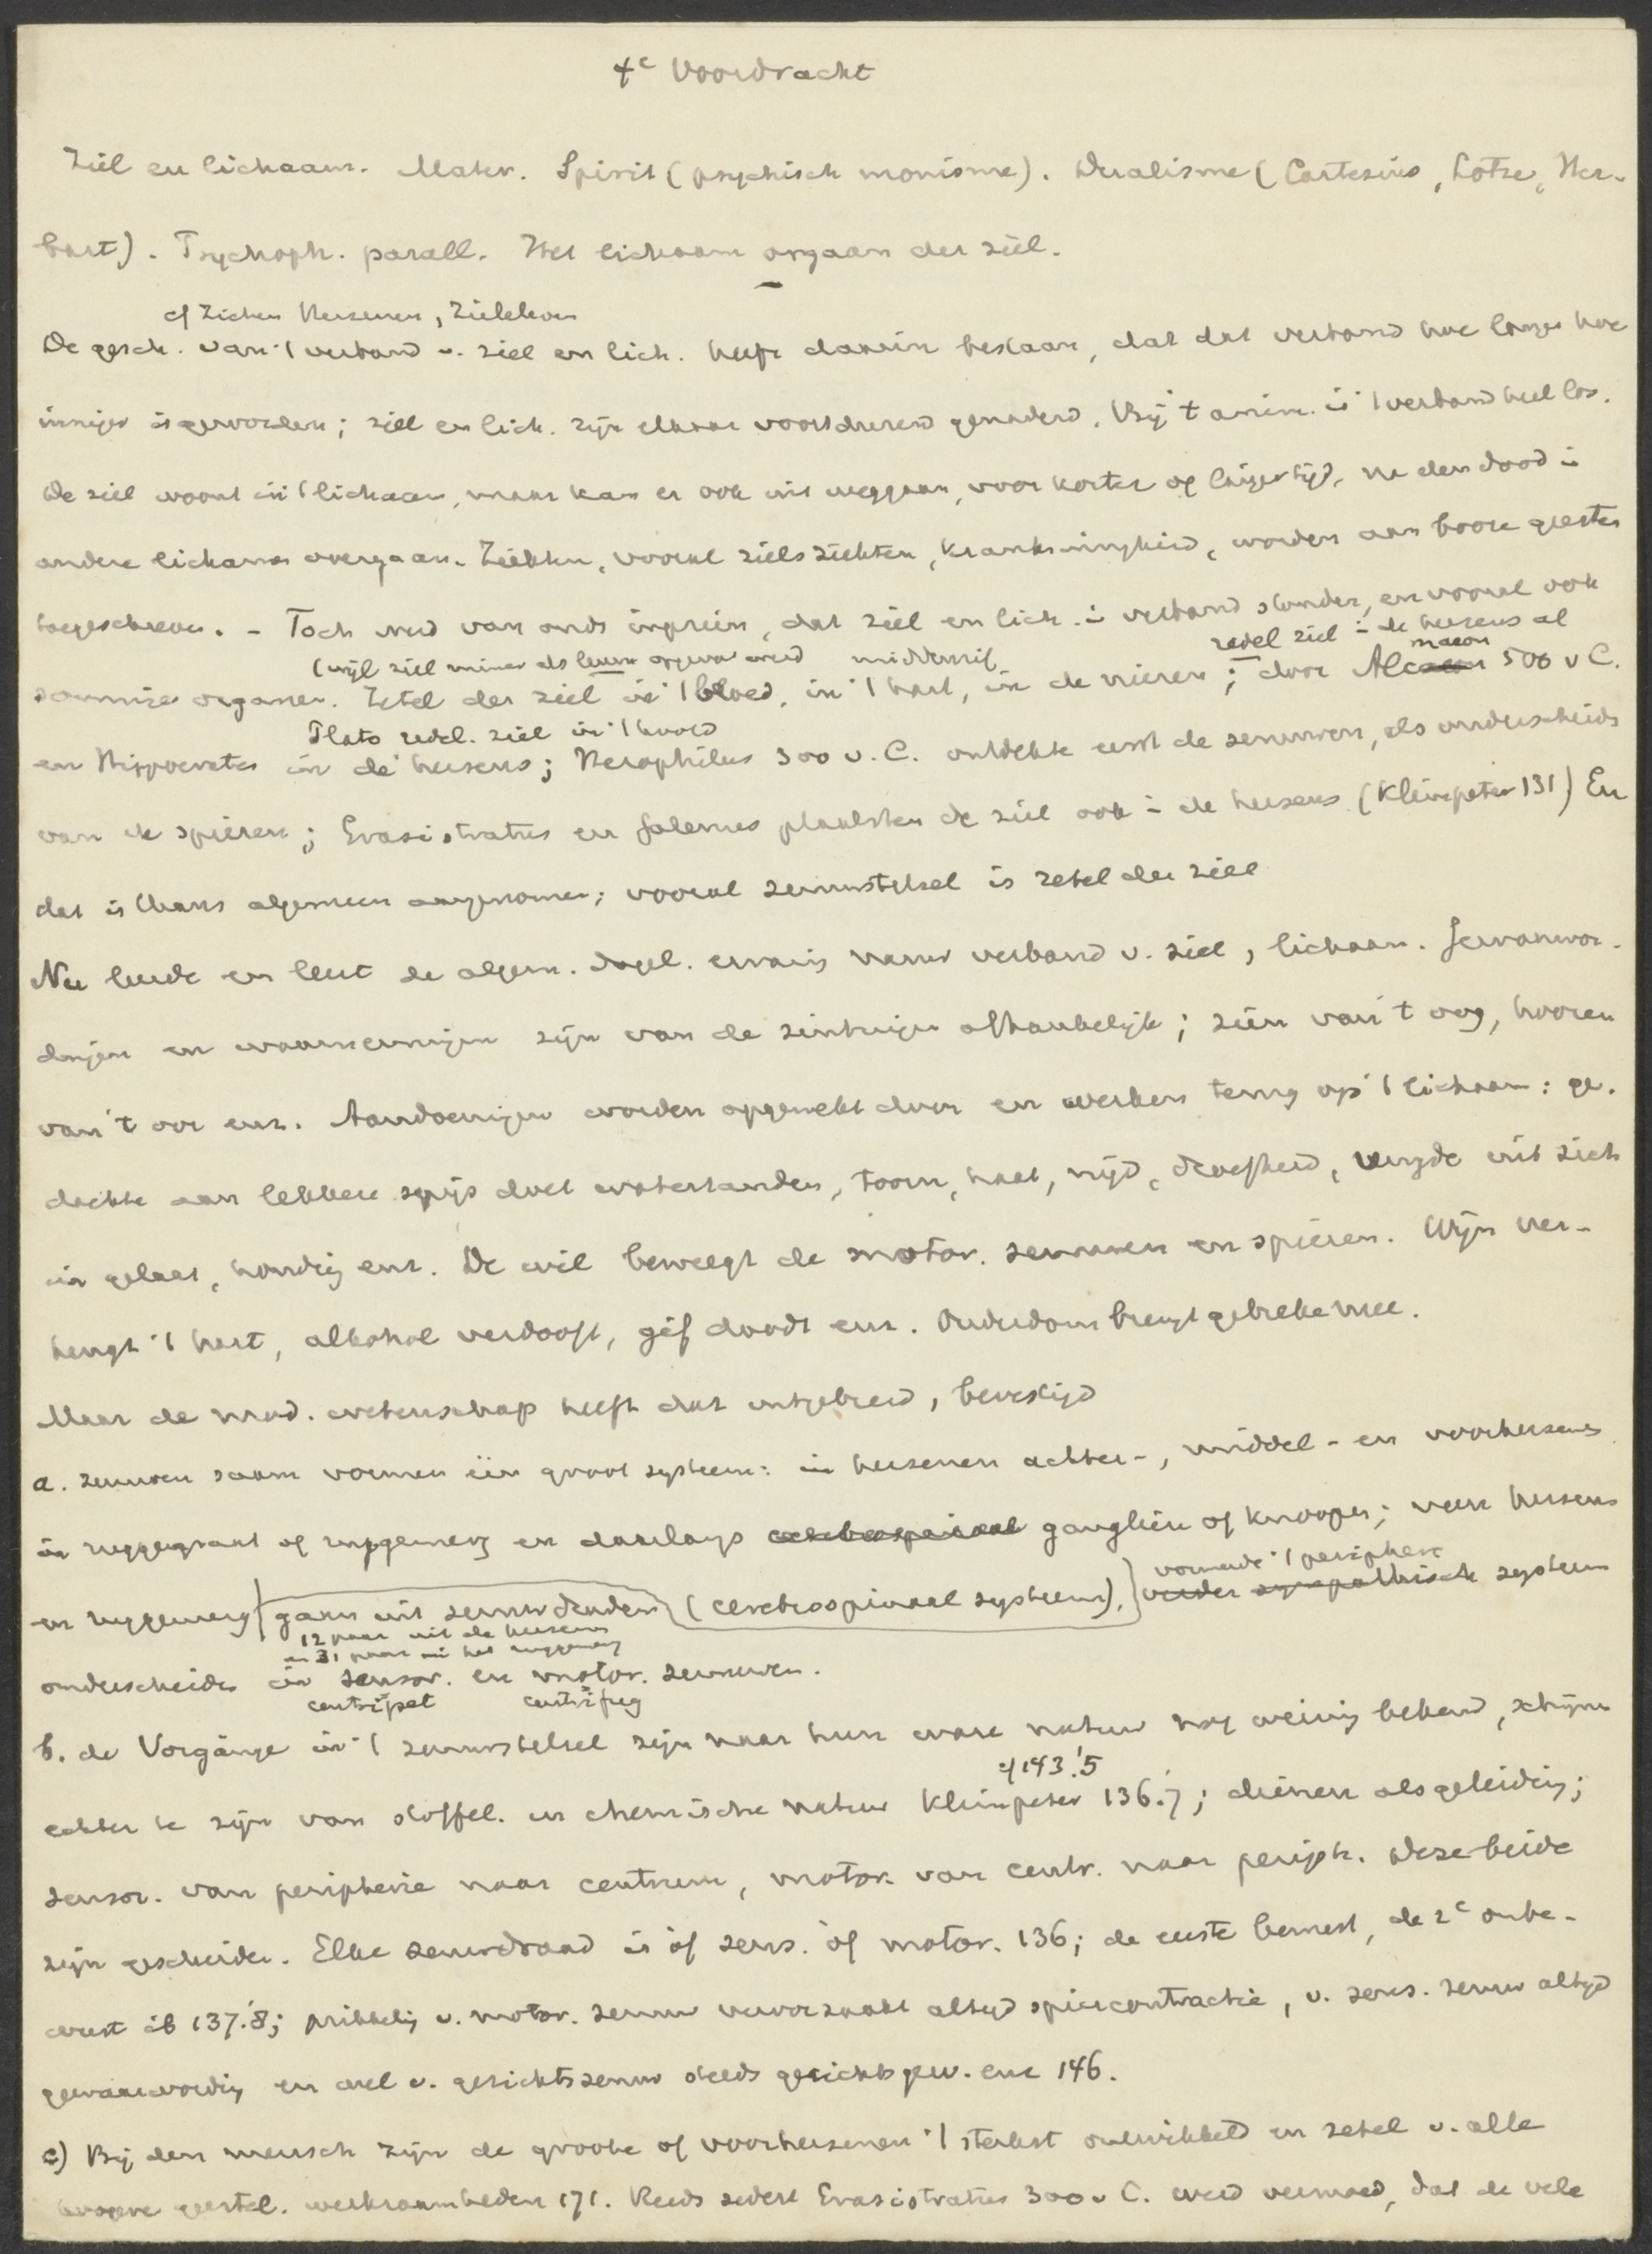 4e Voordracht
Ziel en lichaam. Mater. Spirit (psychisch monisme). Dualisme (Cartesius, Lotze, Her-
bart). Psychoph. parall. Het lichaam orgaan der ziel.
cf Ziehen Hersenen, Zieleleven
De gesch. van 't verband v. ziel en lich. heeft daarin bestaan, dat dat verband hoe langer hoe
inniger is geworden; ziel en lich. zijn elkaar voortdurend genaderd. Bij 't anim. is 't verband heel los.
De ziel woont in 't lichaam, maar kan er ook uit weggaan, voor korter of langer tijd, na den dood in
andere lichamen overgaan. Ziekten, vooral zielsziekten, krankzinnigheid, worden aan booze geesten
toegeschreven. - Toch werd van ouds ingezien, dat ziel en lich. in verband stonden, en vooral ook
(wijl ziel immer als leven opgevat werd middenrif redel ziel in de hersens al
sommige organen. Zetel der ziel in 't bloed, in 't hart, in de nieren; door Alcmaeon 500 v C.
Plato redel. ziel in 't hoofd
en Hippocrates in de hersens; Herophilus 300 v. C. ontdekte eerst de zenuwen, als onderscheiden
van de spieren; Erasistratus en Galenus plaatsten de ziel ook in de hersens (Kleinpeter 131) En
dat is thans algemeen aangenomen; vooral zenuwstelsel is zetel der ziel
Nu leerde en leert de algem. dagel. ervaring nauw verband v. ziel, lichaam. Gewaarwor-
dingen en waarnemingen zijn van de zintuigen afhankelijk; zien van 't oog, hooren
van 't oor enz. Aandoeningen worden opgewekt door en werken terug op 't lichaam: ge-
dachte aan lekkere spijs doet watertanden, toorn, haat, nijd, droefheid, vreugde uit zich
in gelaat, houding enz. De wil beweegt de motor. zenuwen en spieren. Wijn ver-
heugt 't hart, alkohol verdooft, gif doodt enz. Ouderdom brengt gebreken mee.
Maar de mod. wetenschap heeft dat uitgebreid, bevestigd
a. zenuwen saam vormen één groot systeem: in hersenen achter-, middel- en voorhersens
in ruggegraat of ruggemerg en daarlangs cerebrospinaal gangliën of knoopen; van hersens
vormende 't periphere
en ruggemerg gaan uit zenuwdraden (cerebrospinaal systeem), verder sympathisch systeem
12 paar uit de hersens
en 31 paar uit het ruggemerg
onderscheiden in sensor. en motor. zenuwen.
centripet centrifug
b. de Vorgänge in 't zenuwstelsel zijn naar hun ware natuur nog weinig bekend, schijnen
cf 143.'5
echter te zijn van stoffel. en chemische natuur Kleinpeter 136.'7; dienen als geleiding;
sensor. van peripherie naar centrum, motor. van centr. naar periph. Deze beide
zijn gescheiden. Elke zenuwdraad is óf sens. óf motor. 136; de eerste bewust, de 2e onbe-
wust ib 137.'8; prikkeling v. motor. zenuw veroorzaakt altijd spiercontractie, v. sens. zenuw altijd
gewaarwording en wel v. gezichtszenuw steeds gezichtsgew. enz 146.
c) Bij den mensch zijn de groote of voorhersenen 't sterkst ontwikkeld en zetel v. alle
hoogere geestel. werkzaamheden 171. Reeds sedert Erasistratus 300 v C. werd vermoed, dat de vele